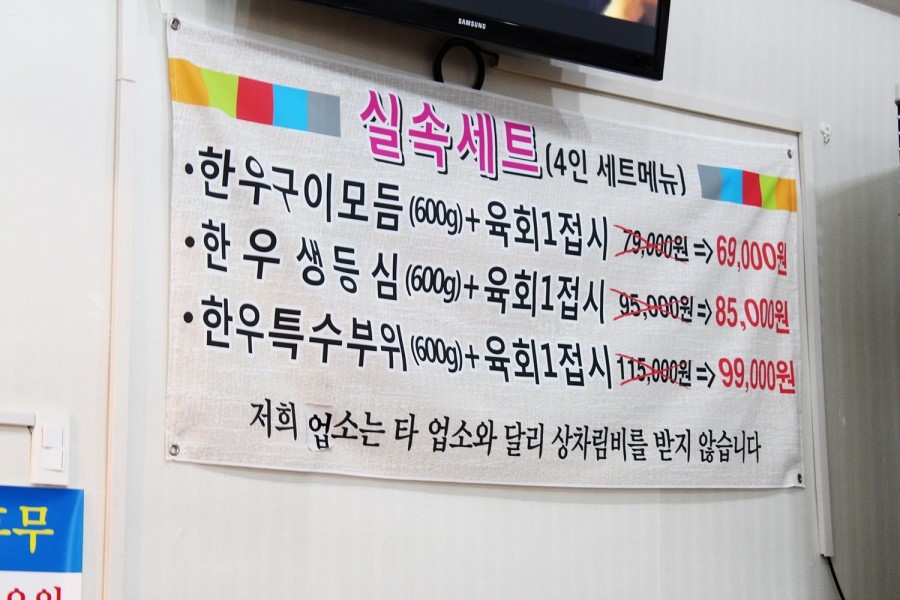 SAMSUNG
실속세트(4인 세트메뉴)
·한우구이모듬(600g)+육회1접시 79,000원=>69,000원
·한우 생등심(600g)+육회1접시 95,000원=>85,000원
·한우특수부위(600g)+육회1접시 115,000원=>99,000원
저희 업소는 타 업소와 달리 상차림비를 받지 않습니다
무